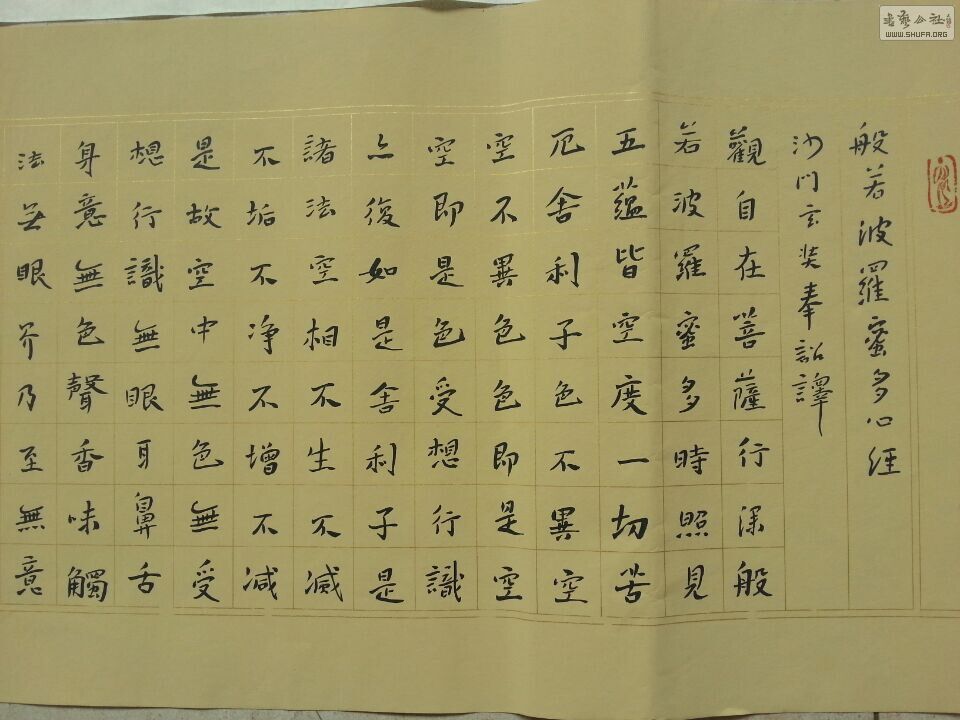 般若波羅蜜多心經
沙門玄奘奉詔譯
觀自在菩薩行深般
若波羅蜜多時照見
五蘊皆空度一切苦
厄舍利子色不異空
空不異色色即是空
空即是色受想行識
亦復如是舍利子是
諸法空相不生不滅
不垢不净不增不減
是故空中無色無受
想行識無眼耳鼻舌
身意無色聲香味觸
法无眼界乃至無意
書藝公社
WWW.SHUFA.ORG